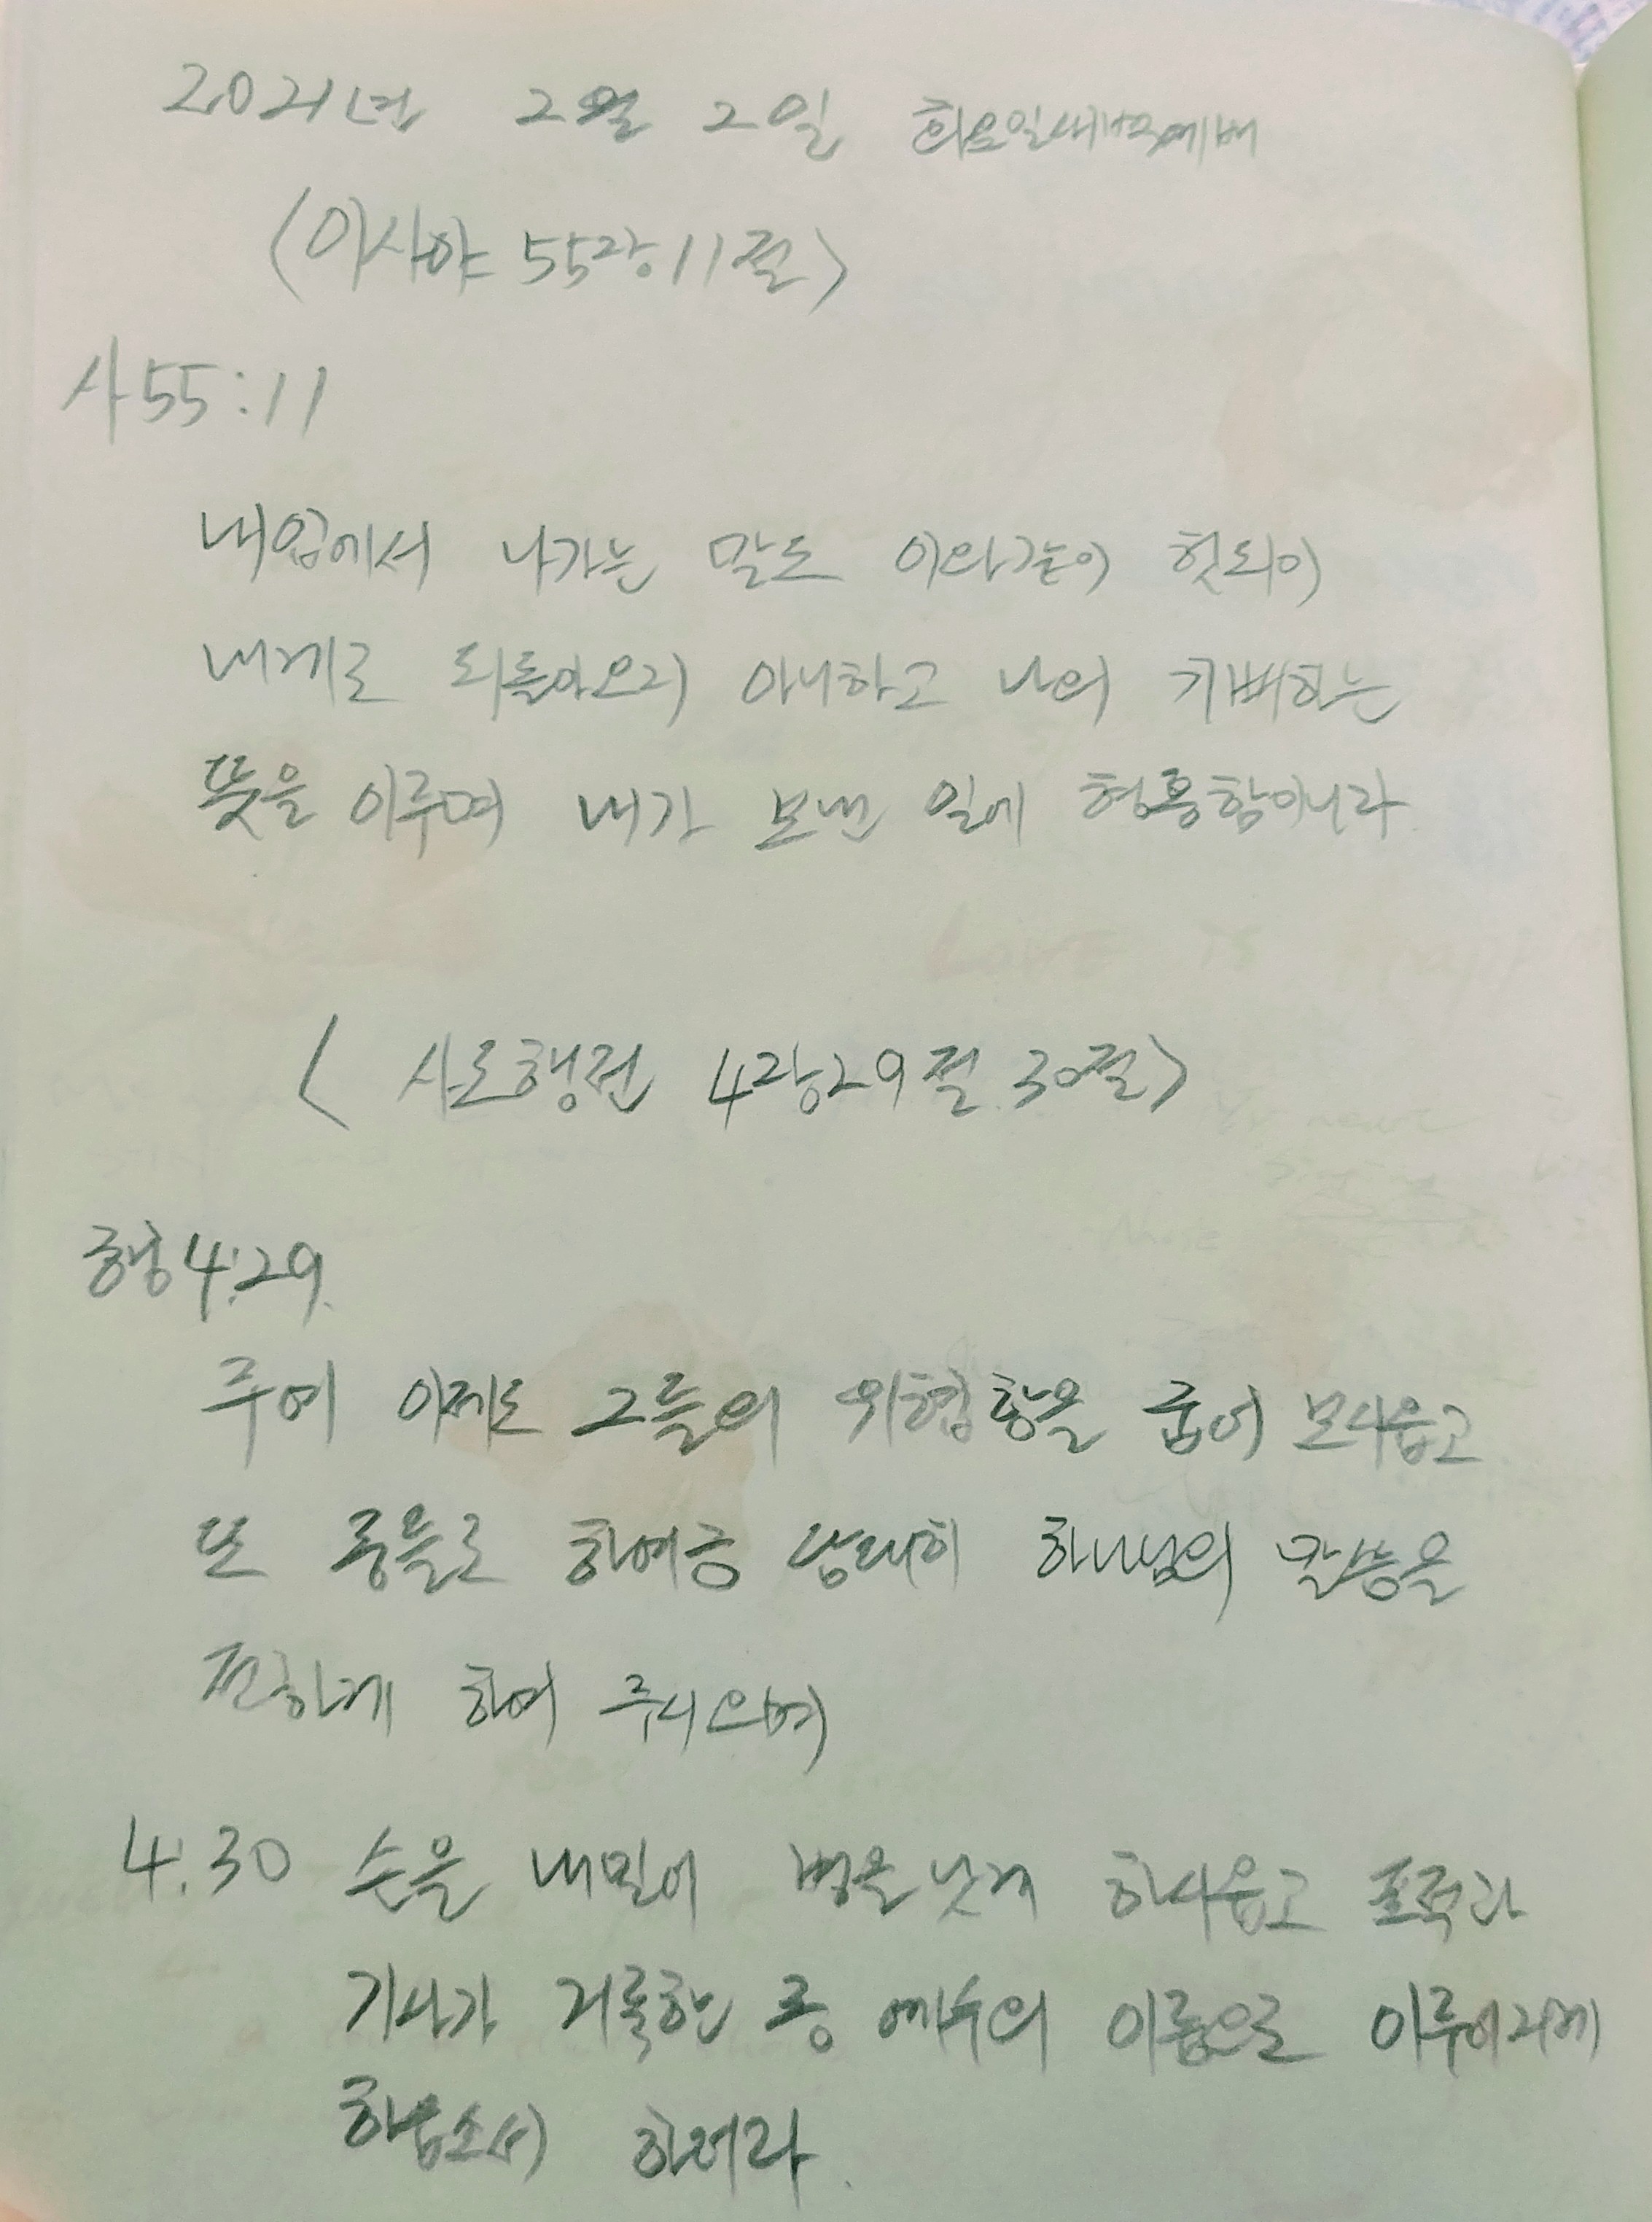 2021년 2월 2일 화요일새벽예배
(이사야 55장11절)
사55:11
내입에서 나가는 말도 이와같이 헛되이
내게로 되돌아오리 아니하고 나의 기뻐하는
뜻을 이루며 내가 보낸 일에 형통함이니라
< 사도행전 4장29절.30절>
행4:29.
주여 이제도 그들의 위협함을 굽어 보시옵고
또 종들로 하여금 담대히 하나님의 말씀을
전하게 하여 주시오며
4:30 손을 내밀어 병을 낫게 하시옵고 표적과
기사가 거룩한 종 예수의 이름으로 이루어지게
하옵소서 하더라.